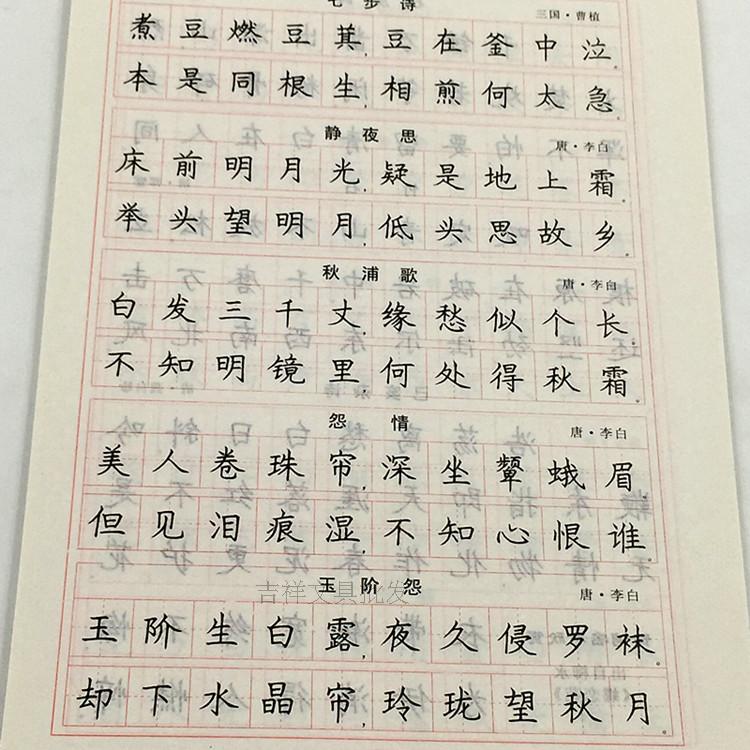 七步诗
三国·曹植
煮豆燃豆萁,豆在釜中泣。
本是同根生,相煎何太急。
静夜思
唐·李白
床前明月光,疑是地上霜。
举头望明月,低头思故乡。
秋浦歌
唐·李白
白发三千丈,缘愁似个长。
不知明镜里,何处得秋霜。
怨情
唐·李白
美人卷珠帘,深坐颦蛾眉。
但见泪痕湿,不知心恨谁。
玉阶怨
唐·李白
吉祥文具批发
玉阶生白露,夜久侵罗袜。
却下水晶帘,玲珑望秋月。